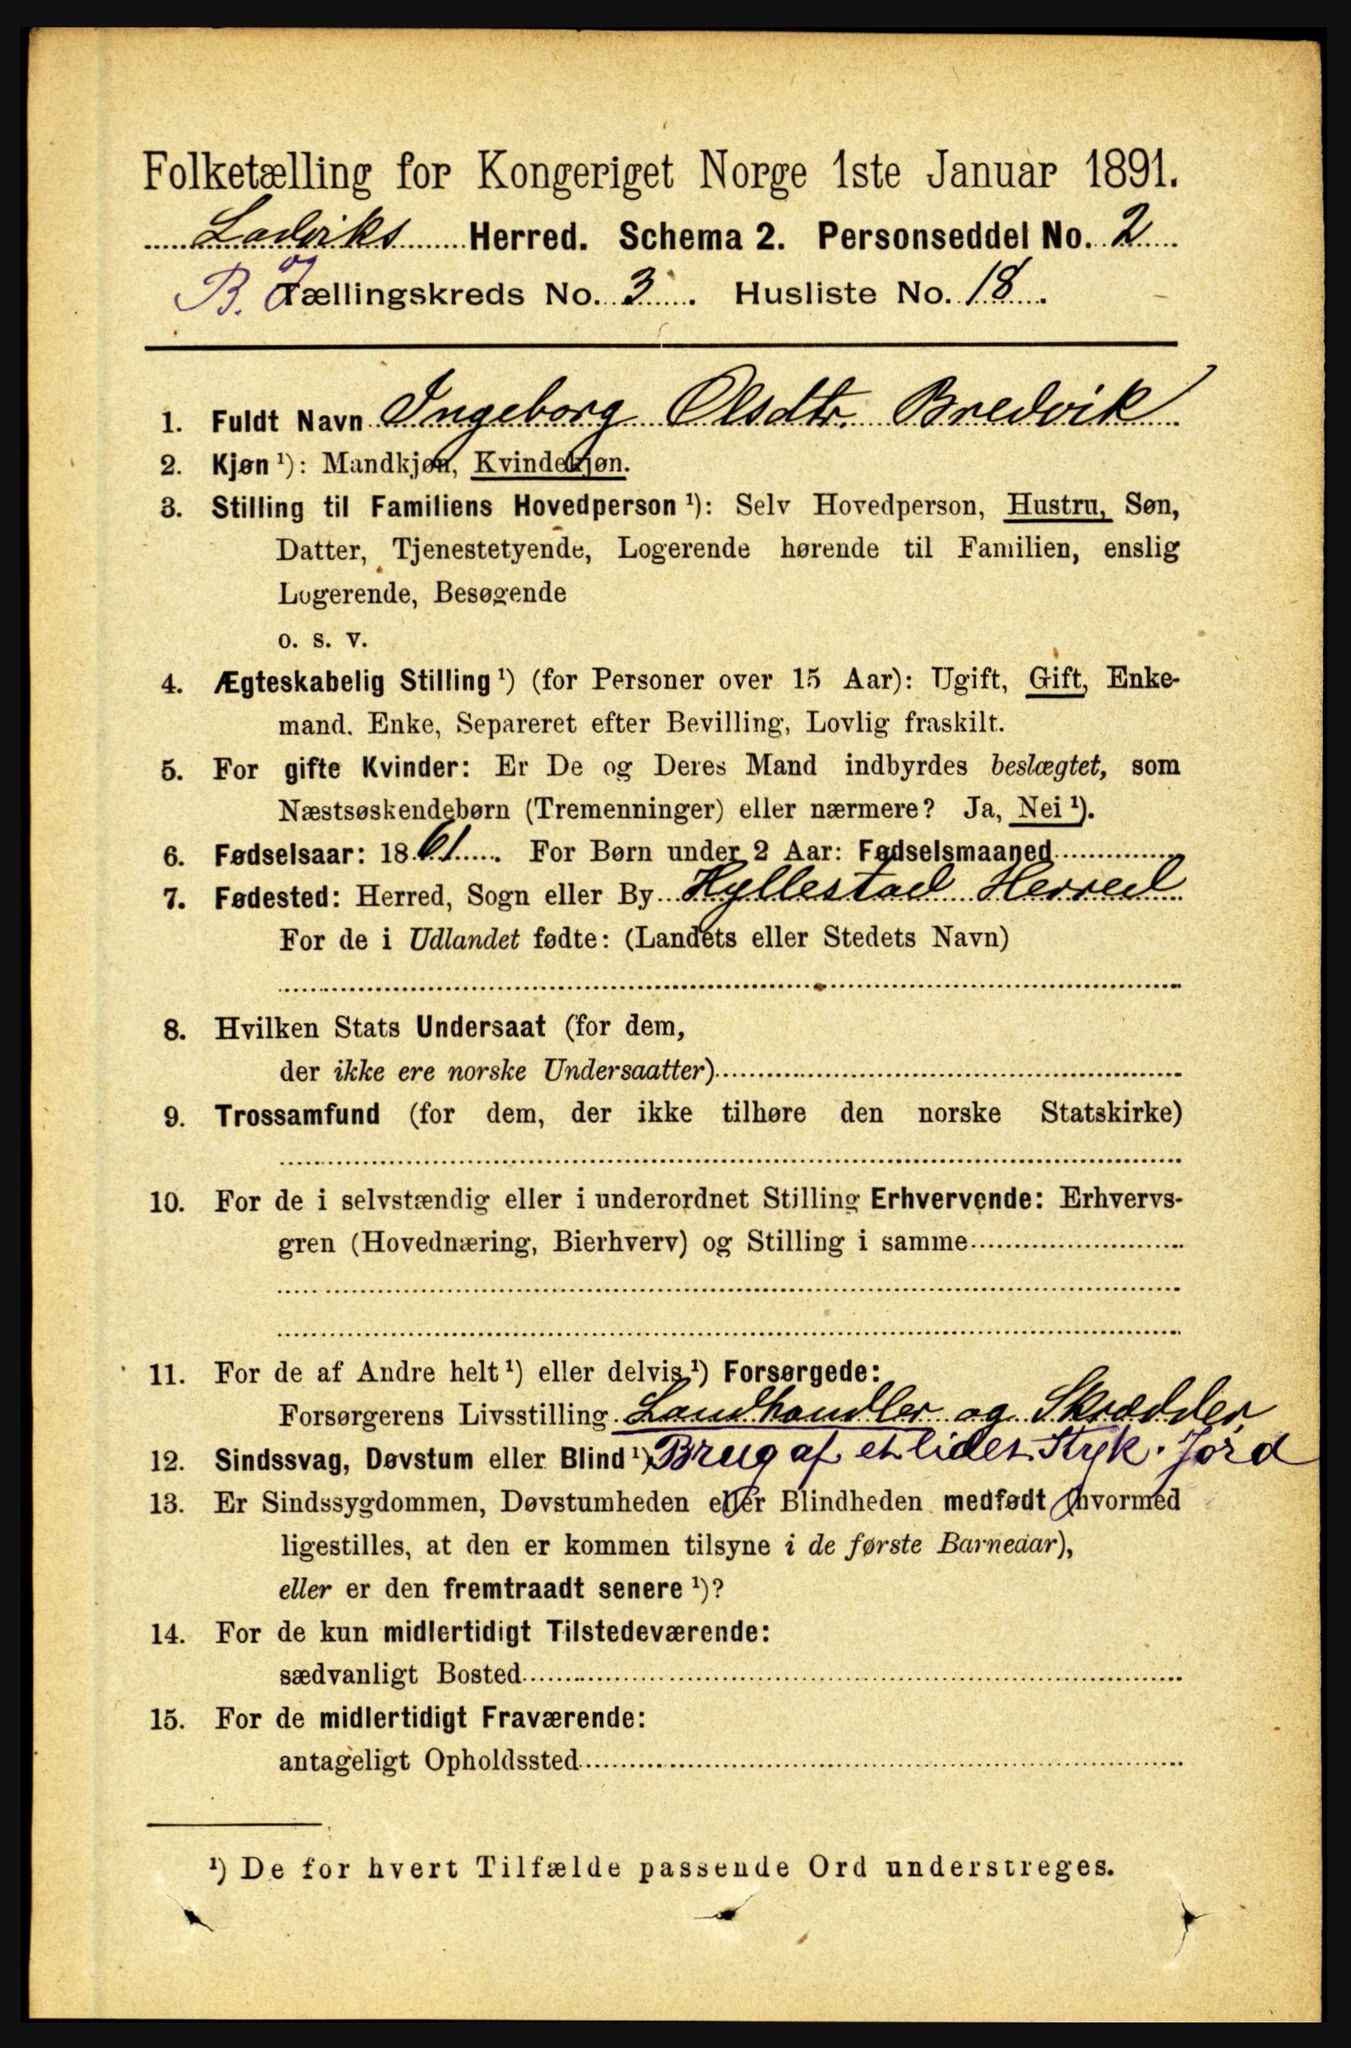 Folketælling for Kongeriget Norge 1ste Januar 1891.
Ladviks Herred. Schema 2. Personseddel No. 2
B. Ø Tællingskreds No. 3. Husliste No. 18.
1. Fuldt Navn Ingeborg Olsdtr. Bredvik
2. Kjøn ¹): Mandkjøn, Kvindekjøn.
3. Stilling til Familiens Hovedperson ¹): Selv Hovedperson, Hustru, Søn,
Datter, Tjenestetyende, Logerende hørende til Familien, enslig
Logerende, Besøgende
o. s. v.
4. Ægteskabelig Stilling ¹) (for Personer over 15 Aar): Ugift, Gift, Enke-
mand, Enke, Separeret efter Bevilling, Lovlig fraskilt.
5. For gifte Kvinder: Er De og Deres Mand indbyrdes beslægtet, som
Næstsøskendebørn (Tremenninger) eller nærmere? Ja, Nei ¹).
6. Fødselsaar: 1861. For Børn under 2 Aar: Fødselsmaaned
7. Fødested: Herred, Sogn eller By Hyllestad Herred
For de i Udlandet fødte: (Landets eller Stedets Navn)
8. Hvilken Stats Undersaat (for dem,
der ikke ere norske Undersaatter)
9. Trossamfund (for dem, der ikke tilhøre den norske Statskirke)
10. For de i selvstændig eller i underordnet Stilling Erhvervende: Erhvervs-
gren (Hovednæring, Bierhverv) og Stilling i samme
11. For de af Andre helt ¹) eller delvis ¹) Forsørgede:
Forsørgerens Livsstilling Landhandler og Skrædder,
12. Sindssvag, Døvstum eller Blind ¹) Brug af et lidet Styk. Jord
13. Er Sindssygdommen, Døvstumheden eller Blindheden medfødt (hvormed
ligestilles, at den er kommen tilsyne i de første Barneaar),
eller er den fremtraadt senere ¹)?
14. For de kun midlertidigt Tilstedeværende:
sædvanligt Bosted
15. For de midlertidigt Fraværende:
antageligt Opholdssted
¹) De for hvert Tilfælde passende Ord understreges.